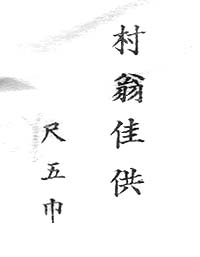 村翁佳供
尺五巾